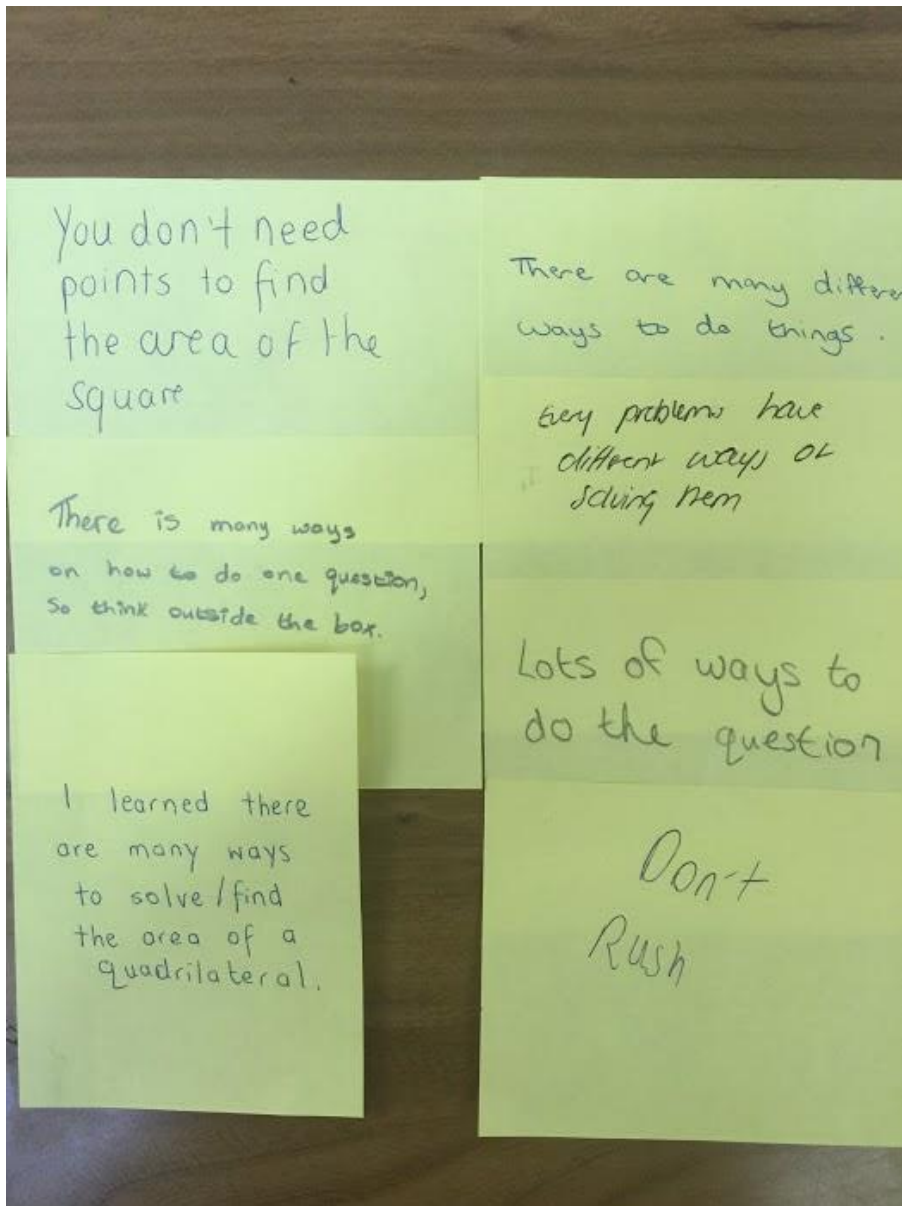 You don't need
points to find
the area of the
square
There is many ways
on how to do one question,
So think outside the box.
I learned there
are many ways
to solve/find
the area of a
quadrilateral.
There are many differen
ways to do things.
Every problems have
different ways of
solving them
Lots of ways to
do the question
Don't
Rush